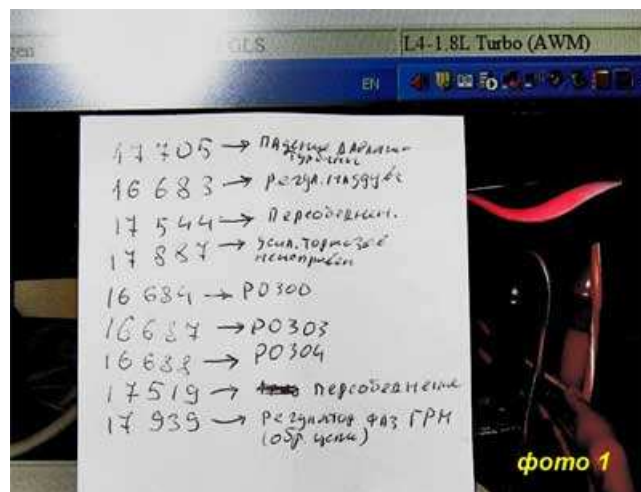 GLS L4-1.8L Turbo (AWM)
EN
17705 → падение давления
турбины
16683 → регул. наддува
17544 → Переобеднен.
17887 → усил. тормозов
неисправен
16684 → P0300
16687 → P0303
16688 → P0304
17519 → переобеднение
17939 → Регулятор фаз ГРМ
(обр. цепи)
фото 1